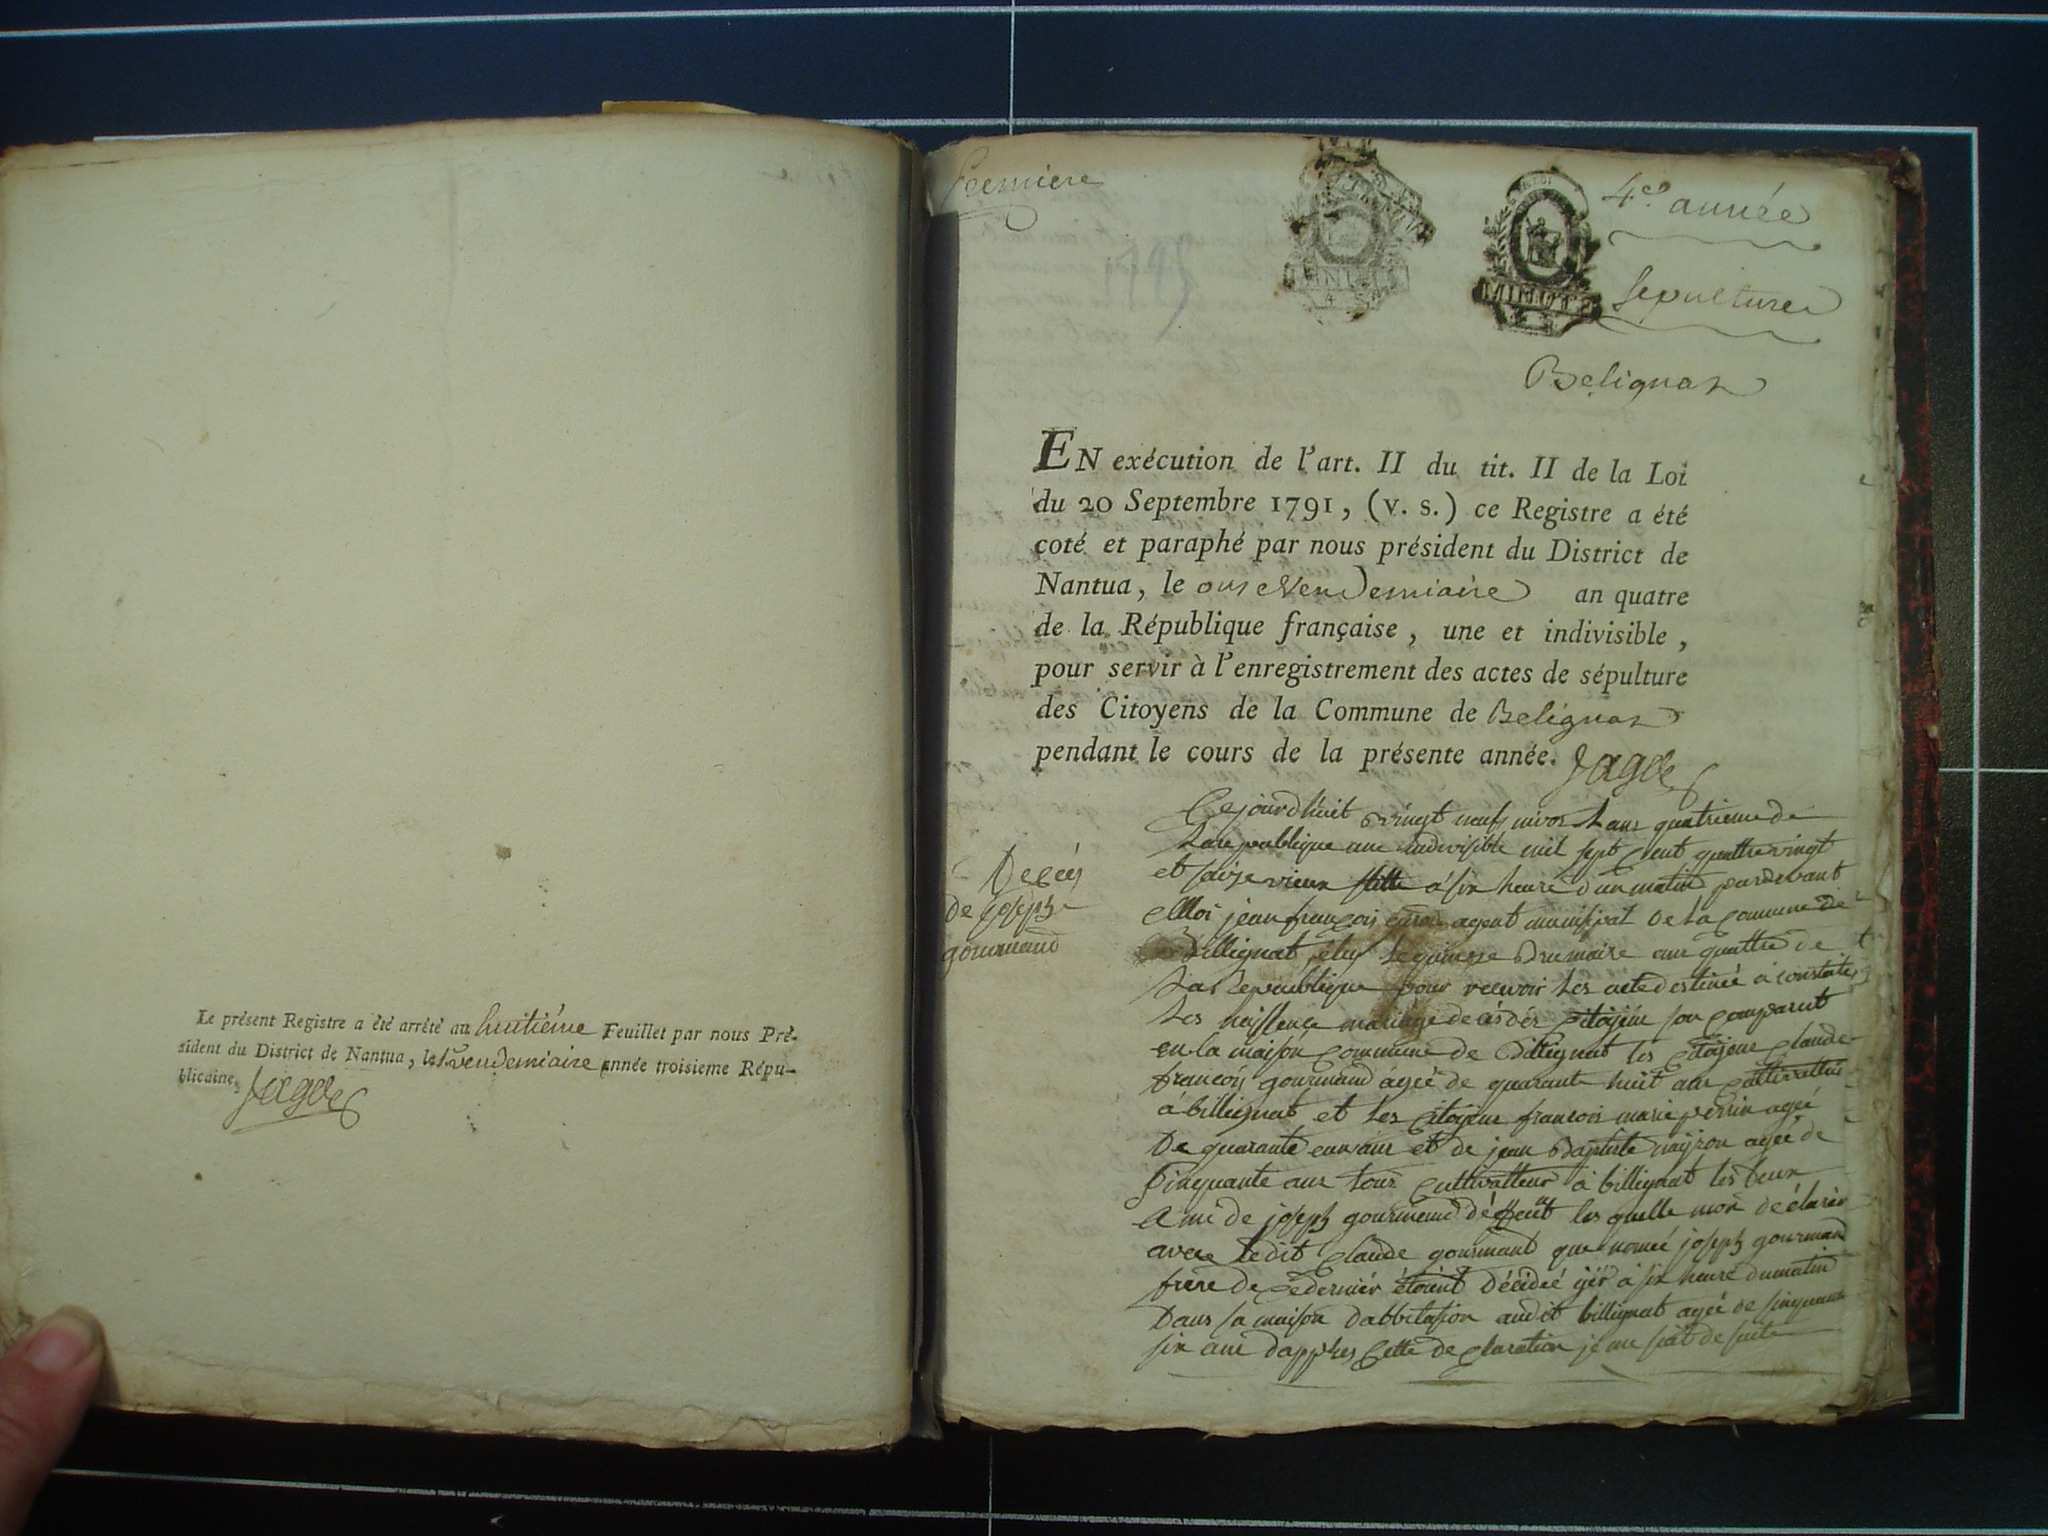 Le présent Registre a été arrété au huitiéme Feuillet par nous Pré-
sident du District de Nantua, le 1er vendemiaire année troisieme Répu-
blicaine. Jagot
premiere
4e. année
Sepulture
Belignat
EN exécution de l'art. II du tit. II de la Loi
du 20 Septembre 1791, (v. s.) ce Registre a été
coté et paraphé par nous président du District de
Nantua, le onze Vendemiaire an quatre
de la République française, une et indivisible,
pour servir à l'enregistrement des actes de sépulture
des Citoyens de la Commune de Belignat
pendant le cours de la présente année. Jagot
Decés
de joseph
gourmand
Cejourdhuit vingt neuf nivos Lans quatrieme de
La republique une indivisible mil sept Cent quattre vingt
et saize vieux stille à six heure dun matin pardevant
Moi jean françois agent municipal de La Commune de
Billignat, éluy Le quinze Brumaire ans quattre de
La Republique pour recevoir Les acte destinéé à constater
Les naissençe mariage décés dés Citojens son Comparut
en la maison Commune de Billignat les Citojens Claude
françois gourmand ágéé de quarante huit ans Cultivatteur
à billignat et Les Citojens francois marie perrin agéé
De quarante eun ans et de jean Baptiste agéé de
Cinquante ans tous Cultivatteur à billignat les deux
Ami de joseph gourmand déffeunt les quelle mon déclarér
avec Ledit Claude gourmand que noméé joseph gourmand
frere de Cedernier étoint décédéé ijér à six heure dumatin
Dans sa maison dabbitasion audit billignat agéé de sinquante
six ans dapprés Cette declaration je me suit de suite